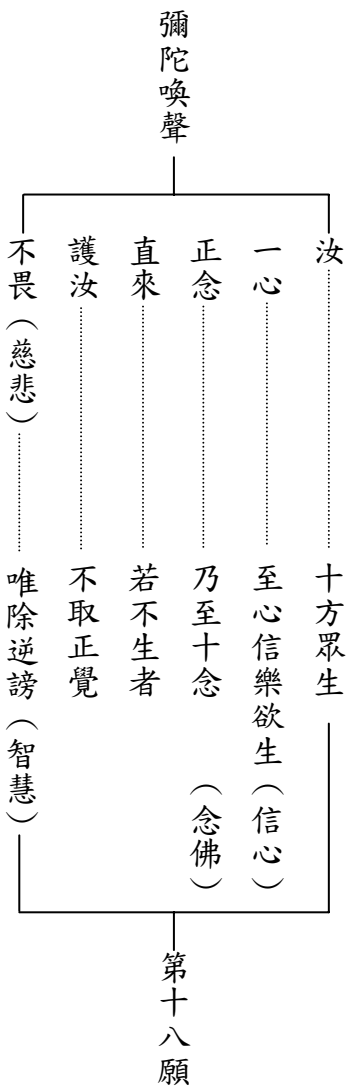 彌陀喚聲
汝……十方眾生
一心……至心信樂欲生（信心）
正念……乃至十念（念佛）
直來……若不生者
護汝……不取正覺
不畏（慈悲）……唯除逆謗（智慧）
第十八願